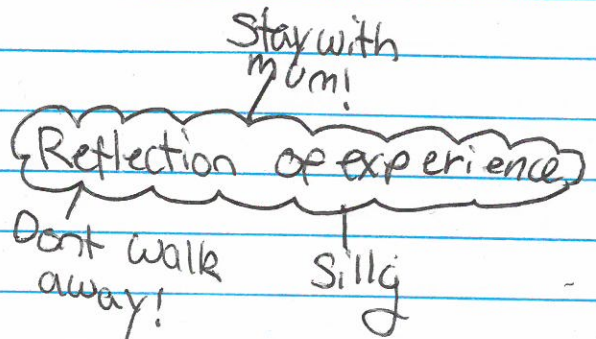 Stay with
mum!
Reflection of experience
Dont walk
away!
Silly